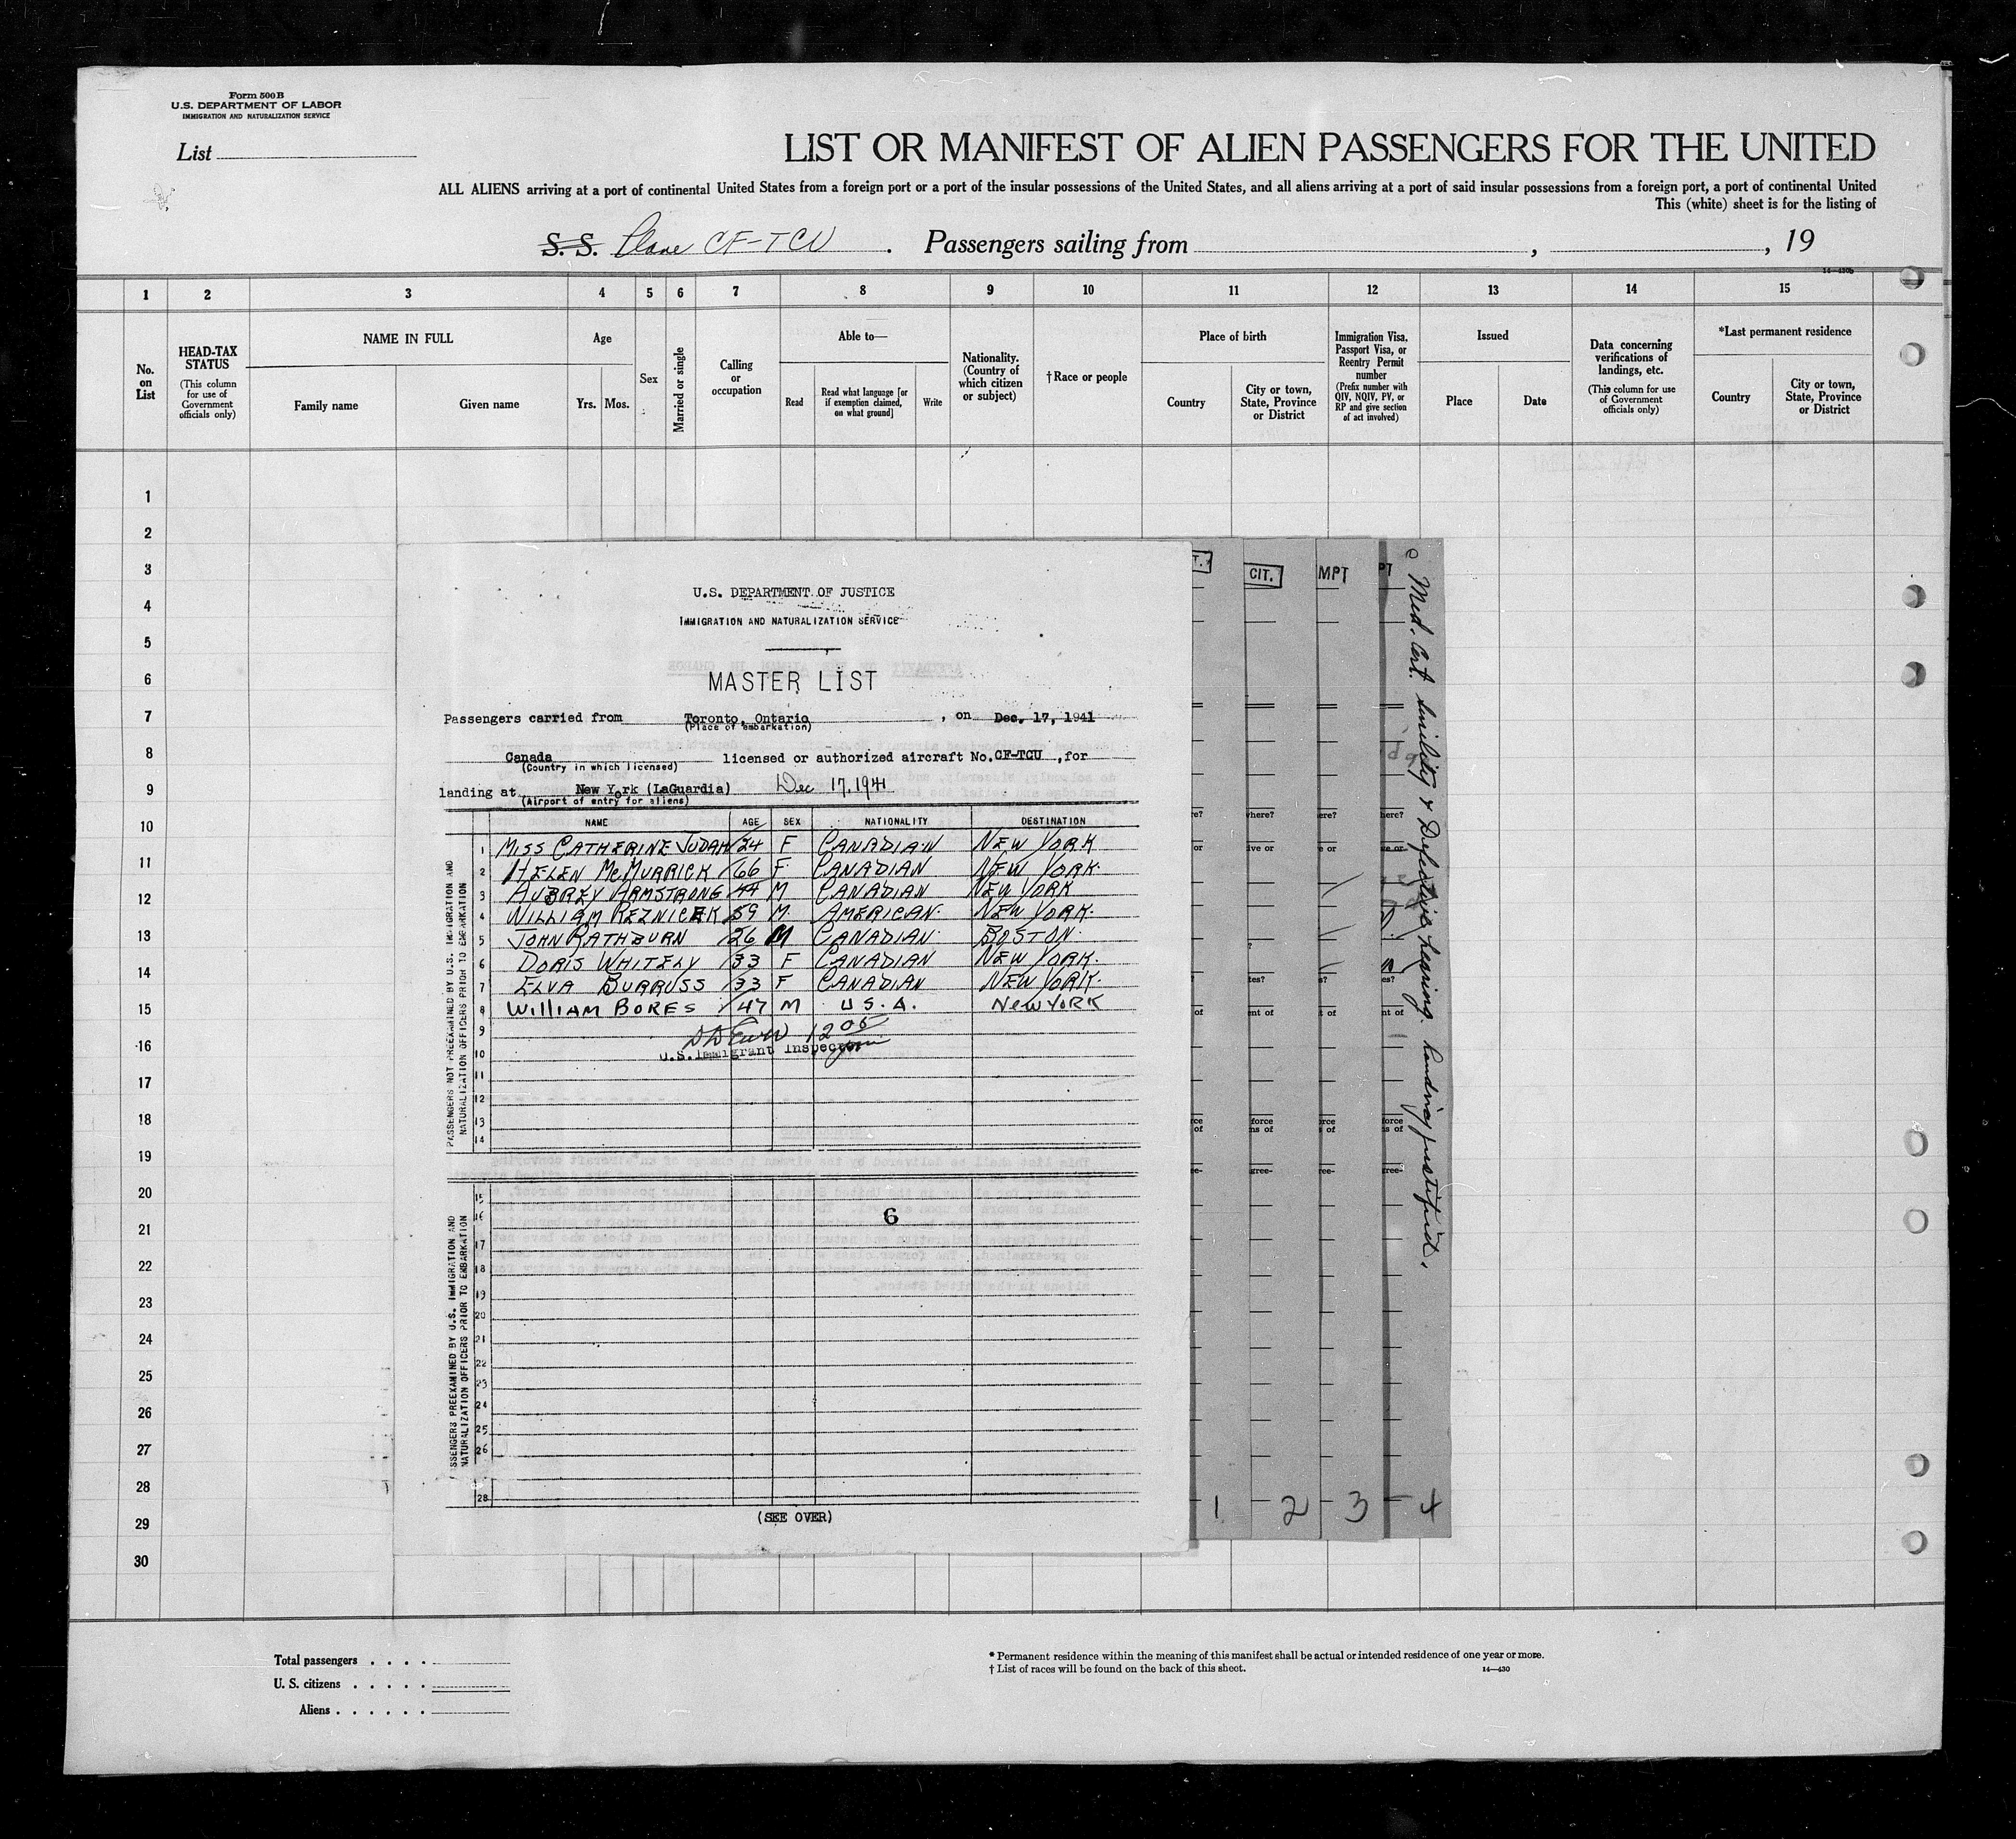 Form 500 B
U.S. DEPARTMENT OF LABOR
IMMIGRATION AND NATURALIZATION SERVICE
List
LIST OR MANIFEST OF ALIEN PASSENGERS FOR THE UNITED
ALL ALIENS arriving at a port of continental United States from a foreign port or a port of the insular possessions of the United States, and all aliens arriving at a port of said insular possessions from a foreign port, a port of continental United
This (white) sheet is for the listing of
S. S. Plane CF-TCU. Passengers sailing from , , 19
1 2 3 4 5 6 7 8 9 10 11 12 13 14 15
No. on List
HEAD-TAX STATUS (This column for use of Government officials only)
NAME IN FULL
Family name Given name
Age
Yrs. Mos.
Sex
Married or single
Calling or occupation
Able to—
Read
Read what language [or if exemption claimed, on what ground]
Write
Nationality. (Country of which citizen or subject)
†Race or people
Place of birth
Country
City or town, State, Province or District
Immigration Visa, Passport Visa, or Reentry Permit number (Prefix number with QIV, NQIV, PV, or RP and give section of act involved)
Issued
Place Date
Data concerning verifications of landings, etc. (This column for use of Government officials only)
*Last permanent residence
Country
City or town, State, Province or District
1
2
3
4
5
6
7
8
9
10
11
12
13
14
15
16
17
18
19
20
21
22
23
24
25
26
27
28
29
30
U.S. DEPARTMENT OF JUSTICE
IMMIGRATION AND NATURALIZATION SERVICE
MASTER LIST
Passengers carried from Toronto, Ontario, on Dec. 17, 1941
(Place of embarkation)
Canada licensed or authorized aircraft No. CF-TCU, for
(Country in which licensed)
landing at New York (LaGuardia) Dec 17, 1941
(Airport of entry for aliens)
NAME AGE SEX NATIONALITY DESTINATION
1 MISS CATHERINE JUDAH 24 F CANADIAN NEW YORK
2 HELEN McMURRICK 66 F CANADIAN NEW YORK
3 AUBREY ARMSTRONG 44 M CANADIAN NEW YORK
4 WILLIAM REZNICEK 59 M AMERICAN NEW YORK
5 JOHN RATHBURN 26 M CANADIAN BOSTON
6 DORIS WHITELY 33 F CANADIAN NEW YORK
7 ELVA BURRUSS 33 F CANADIAN NEW YORK
8 WILLIAM BORES 47 M U.S.A. NEW YORK
9 12 05
10 U.S. Immigrant Inspector
11
12
13
14
PASSENGERS NOT PREEXAMINED BY U.S. IMMIGRATION AND NATURALIZATION OFFICERS PRIOR TO EMBARKATION
15
16 6
17
18
19
20
21
22
23
24
25
26
28
PASSENGERS PREEXAMINED BY U.S. IMMIGRATION AND NATURALIZATION OFFICERS PRIOR TO EMBARKATION
(SEE OVER)
CIT. MPT PT
Med. Cert. senility & Defective hearing.
1 2 3 4
Total passengers . . . .
U. S. citizens . . . . .
Aliens . . . . . .
* Permanent residence within the meaning of this manifest shall be actual or intended residence of one year or more.
† List of races will be found on the back of this sheet. 14—430